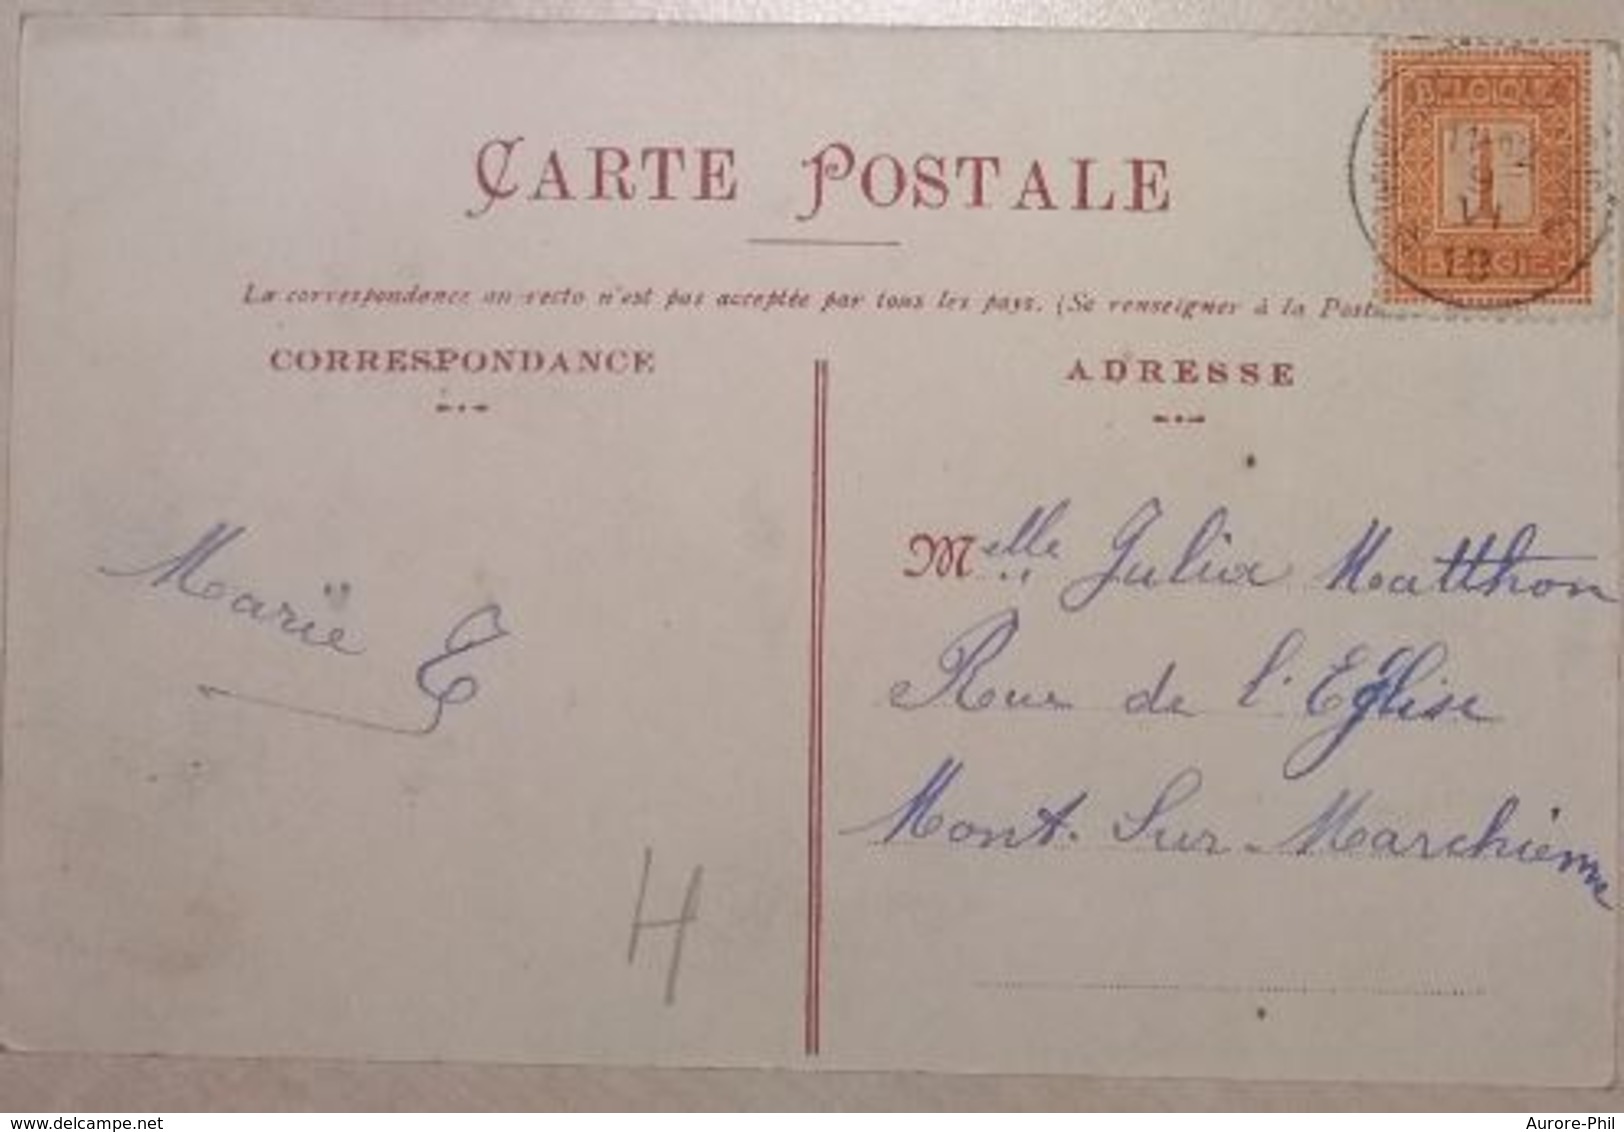 CARTE POSTALE
La correspondance au recto n'est pas acceptée par tous les pays. (Se renseigner à la Poste
CORRESPONDANCE
ADRESSE
BELGIQUE
1
BELGIE
Marïe E
Melle Julia Matthon
Rue de l'Eglise
Mont. Sur Marchienne
H
delcampe.net
Aurore-Phil